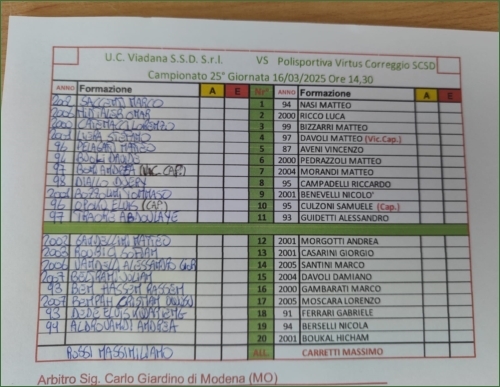 U.C. Viadana S.S.D. S.r.l. VS Polisportiva Virtus Correggio SCSD
Campionato 25° Giornata 16/03/2025 Ore 14,30
ANNO Formazione A E Nr° ANNO Formazione A E
2002 SACCENTI MARCO 1 94 NASI MATTEO
OMAR 2 2000 RICCO LUCA
LORENZO 3 99 BIZZARRI MATTEO
STEFANO 4 97 DAVOLI MATTEO (Vic.Cap.)
96 PELAGATTI MATTEO 5 87 AVENI VINCENZO
96 DAVIDE 6 2000 PEDRAZZOLI MATTEO
97 ANDREA (VIC. CAP.) 7 2004 MORANDI MATTEO
98 DIALLO 8 95 CAMPADELLI RICCARDO
TOMMASO 9 2001 BENEVELLI NICOLO'
96 OPOKU ELVIS (CAP) 10 95 CULZONI SAMUELE (Cap.)
97 TRAORE ABDOULAYE 11 93 GUIDETTI ALESSANDRO
2002 MATTEO 12 2001 MORGOTTI ANDREA
13 2001 CASARINI GIORGIO
14 2005 SANTINI MARCO
15 2004 DAVOLI DAMIANO
93 BEM HASSEM BASSEM 16 2000 GAMBARATI MARCO
2007 BEMPAH CRISTIAN 17 2005 MOSCARA LORENZO
93 DEDE ELOIS 18 91 FERRARI GABRIELE
94 ALDROVANDI ANDREA 19 94 BERSELLI NICOLA
20 2001 BOUKAL HICHAM
ROSSI MASSIMILIANO ALL. CARRETTI MASSIMO
Arbitro Sig. Carlo Giardino di Modena (MO)